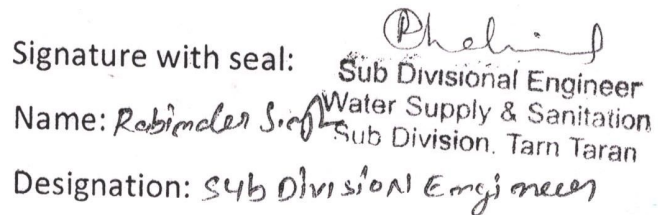 Signature with seal:
Sub Divisional Engineer
Water Supply & Sanitation
Sub Division. Tarn Taran
Name: Rabinder Singh
Designation: Sub Division Engineer